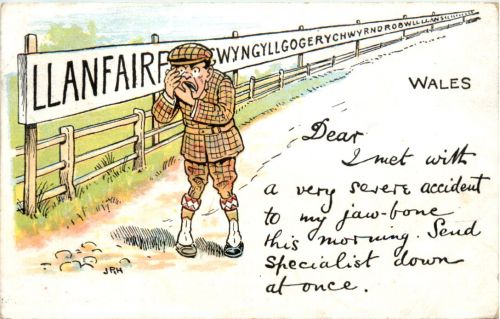 LLANFAIRP WYNGYLLGOGERYCHWYRNDROBWLLLLANS
WALES
Dear
I met with
a very severe accident
to my jaw-bone
this morning. Send
specialist down
at once.
JRH